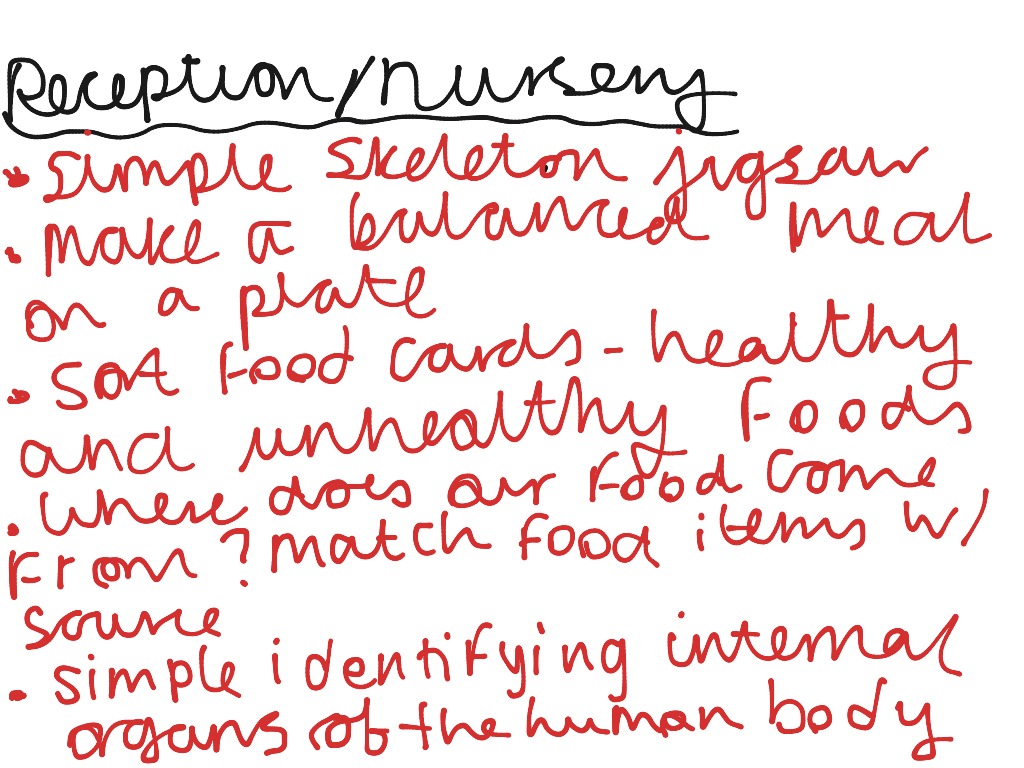 Reception/nursery
• Simple skeleton jigsaw
• Make a balanced meal
on a plate
• Sort food cards - healthy
and unhealthy foods
• Where does our food come
from? Match food items w/
source
• Simple identifying internal
organs of the human body